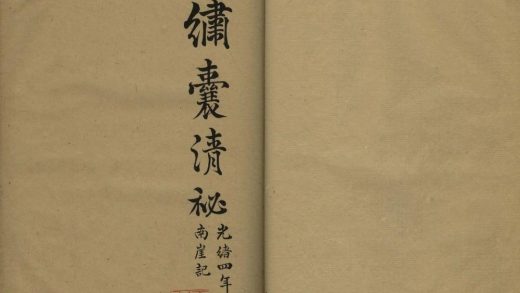 繡囊清祕
光緒四年
南崖記